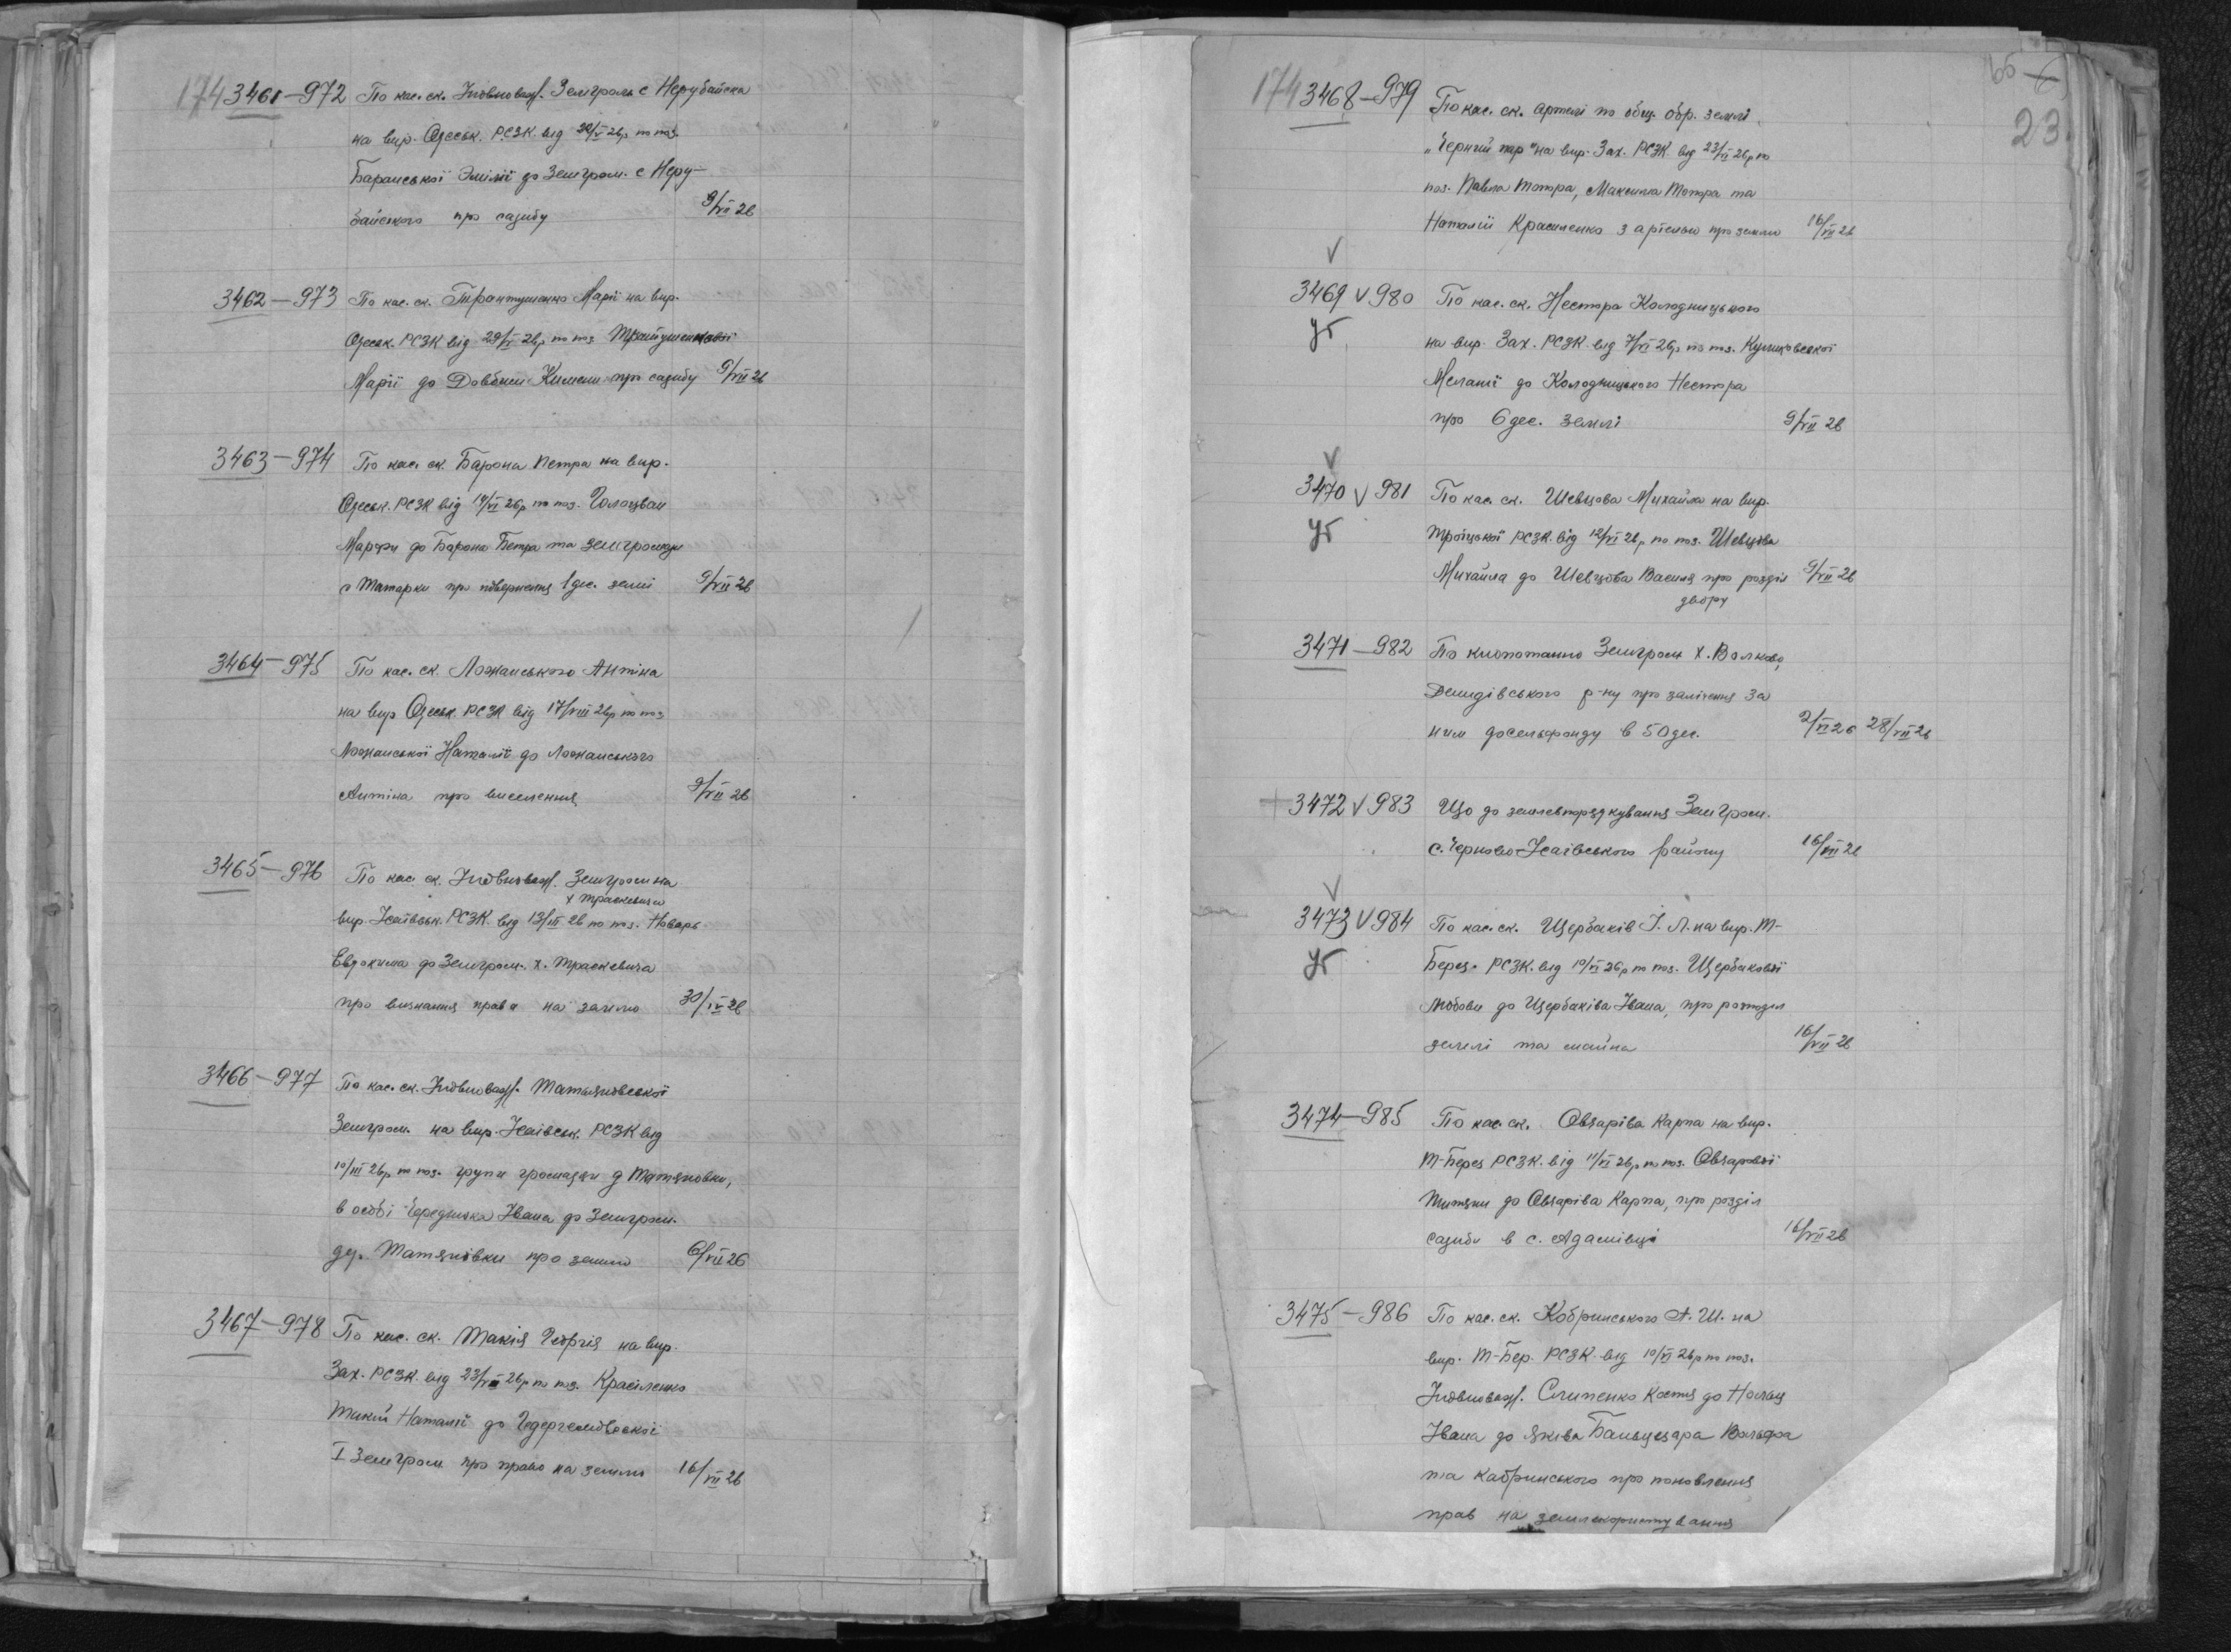 174 3461—972 По кас. ск. Уповноваж. Земгром. с Нерубайска
на вир. Одеськ. РСЗК. від 29/VI 26р по поз.
Баранської Эмілії до Земгром. с Неру-
байского про садибу 9/VII 26
3462—973 По кас. ск. Марії на вир.
Одеськ. РСЗК від 29/VI 26р по поз.
Марії до Довбиш про садибу 9/VII 26
3463—974 По кас. ск. Барона Петра на вир.
Одеськ. РСЗК від 19/VI 26р по поз.
Марфи до Барона Петра та земгромади
с Татарки про повернення 1 дес. землі 9/VII 26
3464—975 По кас. ск. Ложанського Антіна
на вир Одеськ. РСЗК від 17/VIII 26р по поз
Ложанської Наталії до Ложанського
Антіна про виселення 9/VII 26
3465—976 По кас. ск. Уповноваж. Земгром на
х Траскевича
вир. Ісаївськ. РСЗК. від 13/III 26 по поз.
Евдокима до Земгром. х. Траскевича
про визнання права на землю 30/IV 26
3466—977 По кас. ск. Уповноваж.
Земгром. на вир. Ісаївськ. РСЗК від
10/III 26р по поз. групи громадян д Татяновки,
в особі Чередника Івана до Земгром.
дер. Татянівки про землю 6/VII 26
3467—978 По кас. ск. Такія Георгія на вир.
Зах. РСЗК від 23/VI 26р по поз. Красіленко
Наталії до
I Земгром про право на землю 16/VII 26
65
23
174 3468—979 По кас. ск. артелі по общ. обр. землі
„Черний пар" на вир. Зах. РСЗК від 23/VI 26р по
поз. Павла Тотра, Максима Тотра та
Наталії Красиленко з артелью про землю 16/VII 26
3469 V 980 По кас. ск. Нестора Колодницького
на вир. Зах. РСЗК від 7/VI 26р по поз. Куликовської
Меланії до Колодницького Нестора
про 6 дес. землі 9/VII 26
3470 V 981 По кас. ск. Шевцова Михайла на вир.
Троїцької РСЗК. від 12/VI 26р по поз. Шевцова
Михайла до Шевцова Василя про розділ 9/VII 26
двору
3471—982 По клопотанню Земгром х. Волково,
Демидівського р-ну про залічення за
ним досельфонду в 50 дес. 2/VI 26 28/VII 26
3472 V 983 Що до землевпорядкування Земгром.
с. Черново-Ісаївського району 16/VII 26
3473 V 984 По кас. ск. Щербаків І. Л. на вир. Т-
Берез. РСЗК. від 10/VI 26р по поз. Щербакової
Любови до Щербаківа Івана, про розподіл
землі та майна 16/VII 26
3474—985 По кас. ск. Овчаріва Карпа на вир.
Т-Берез РСЗК. від 11/VI 26р по поз. Овчарової
до Овчаріва Карпа, про розділ
садиби в с. Адамівці 16/VII 26
3475—986 По кас. ск. Кобринського А. Ш. на
вир. Т-Бер. РСЗК від 10/VI 26р по поз.
Уповноваж. Слипенко Костя до
Івана до Яківа Вольфа
та Кабринського про поновлення
прав на землекористування